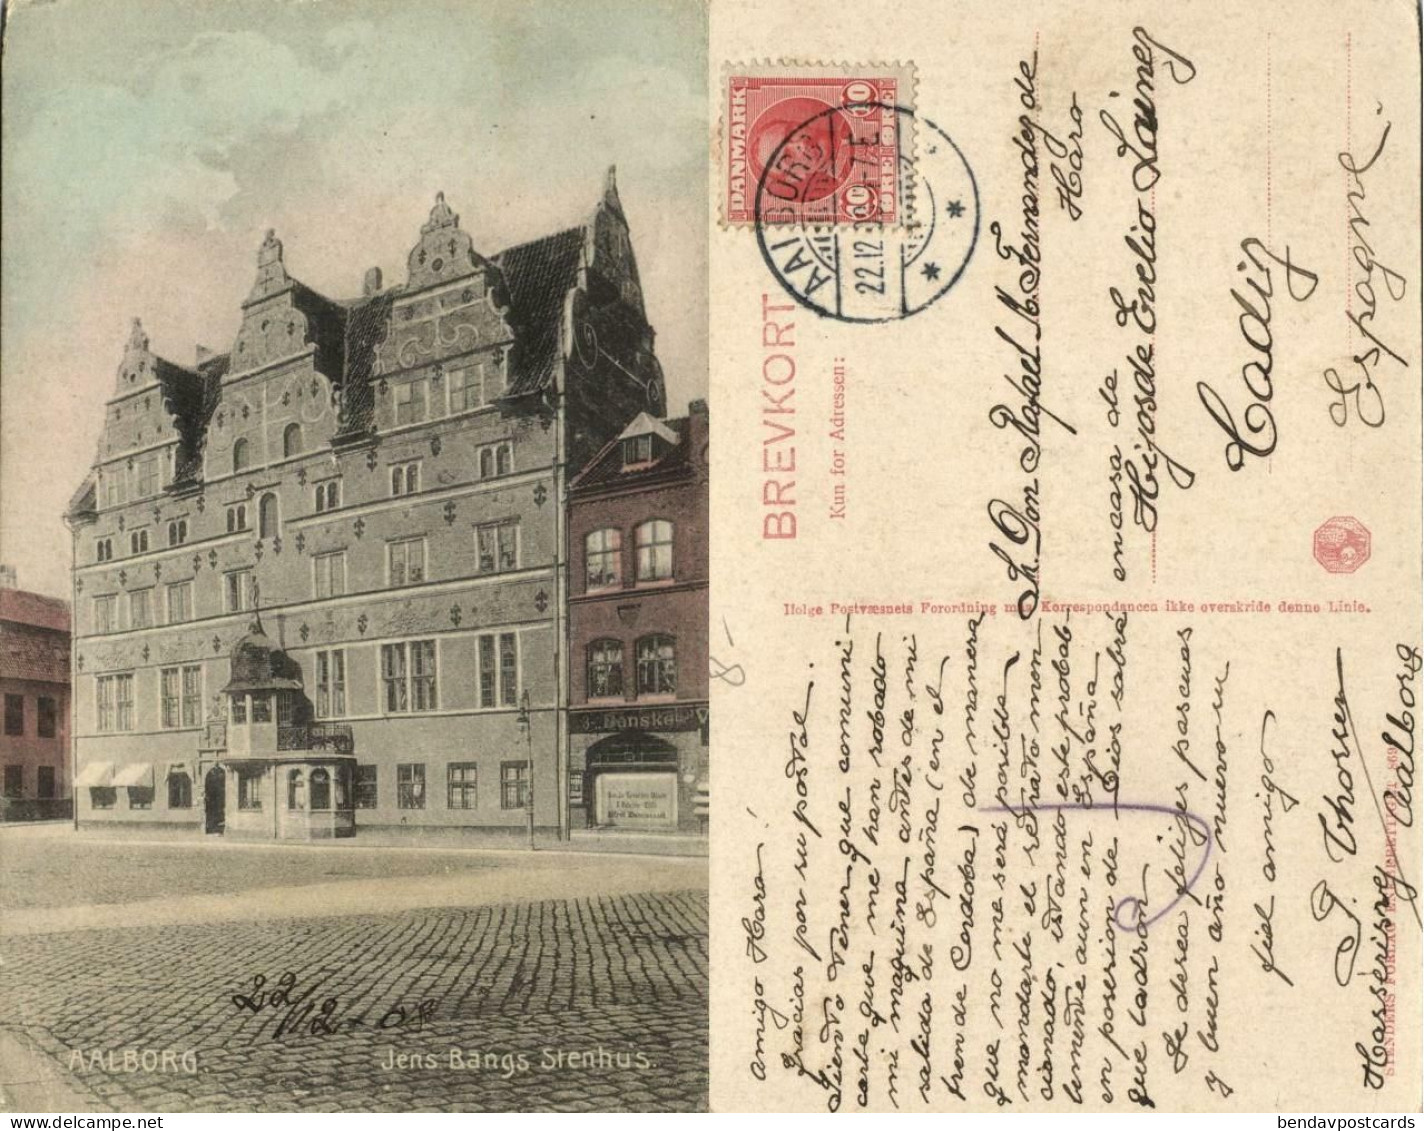 22/12-08
AALBORG.
Jens Bangs Stenhus.
Danske
DANMARK
10
10
ØRE
ØRE
AALBORG
22.12
BREVKORT
Kun for Adressen:
Sr. Don Rafael M. Fernandez de
Haro
en casa de
Hijos de Evelio Lainez
Cadiz
Espagne
Ifølge Postvæsnets Forordning maa Korrespondancen ikke overskride denne Linie.
8-
Amigo Haro!
Gracias por su postal.
Siendo tener que comuni-
carle que me han robado
mi maquina antes de mi
salida de España (en el
tren de Cordoba) de manera
que no me será posible
mandarte el retrato men-
cionado, istando este probab-
lemente aun en España
en posesion de Dios sabrá
que ladron
Le desea felizes pascuas
y buen año nuevo su
fiel amigo
P. Thorsen
Hasserisvej Aalborg
STENDERS FORLAG ENEBERETTIGET
bendavpostcards